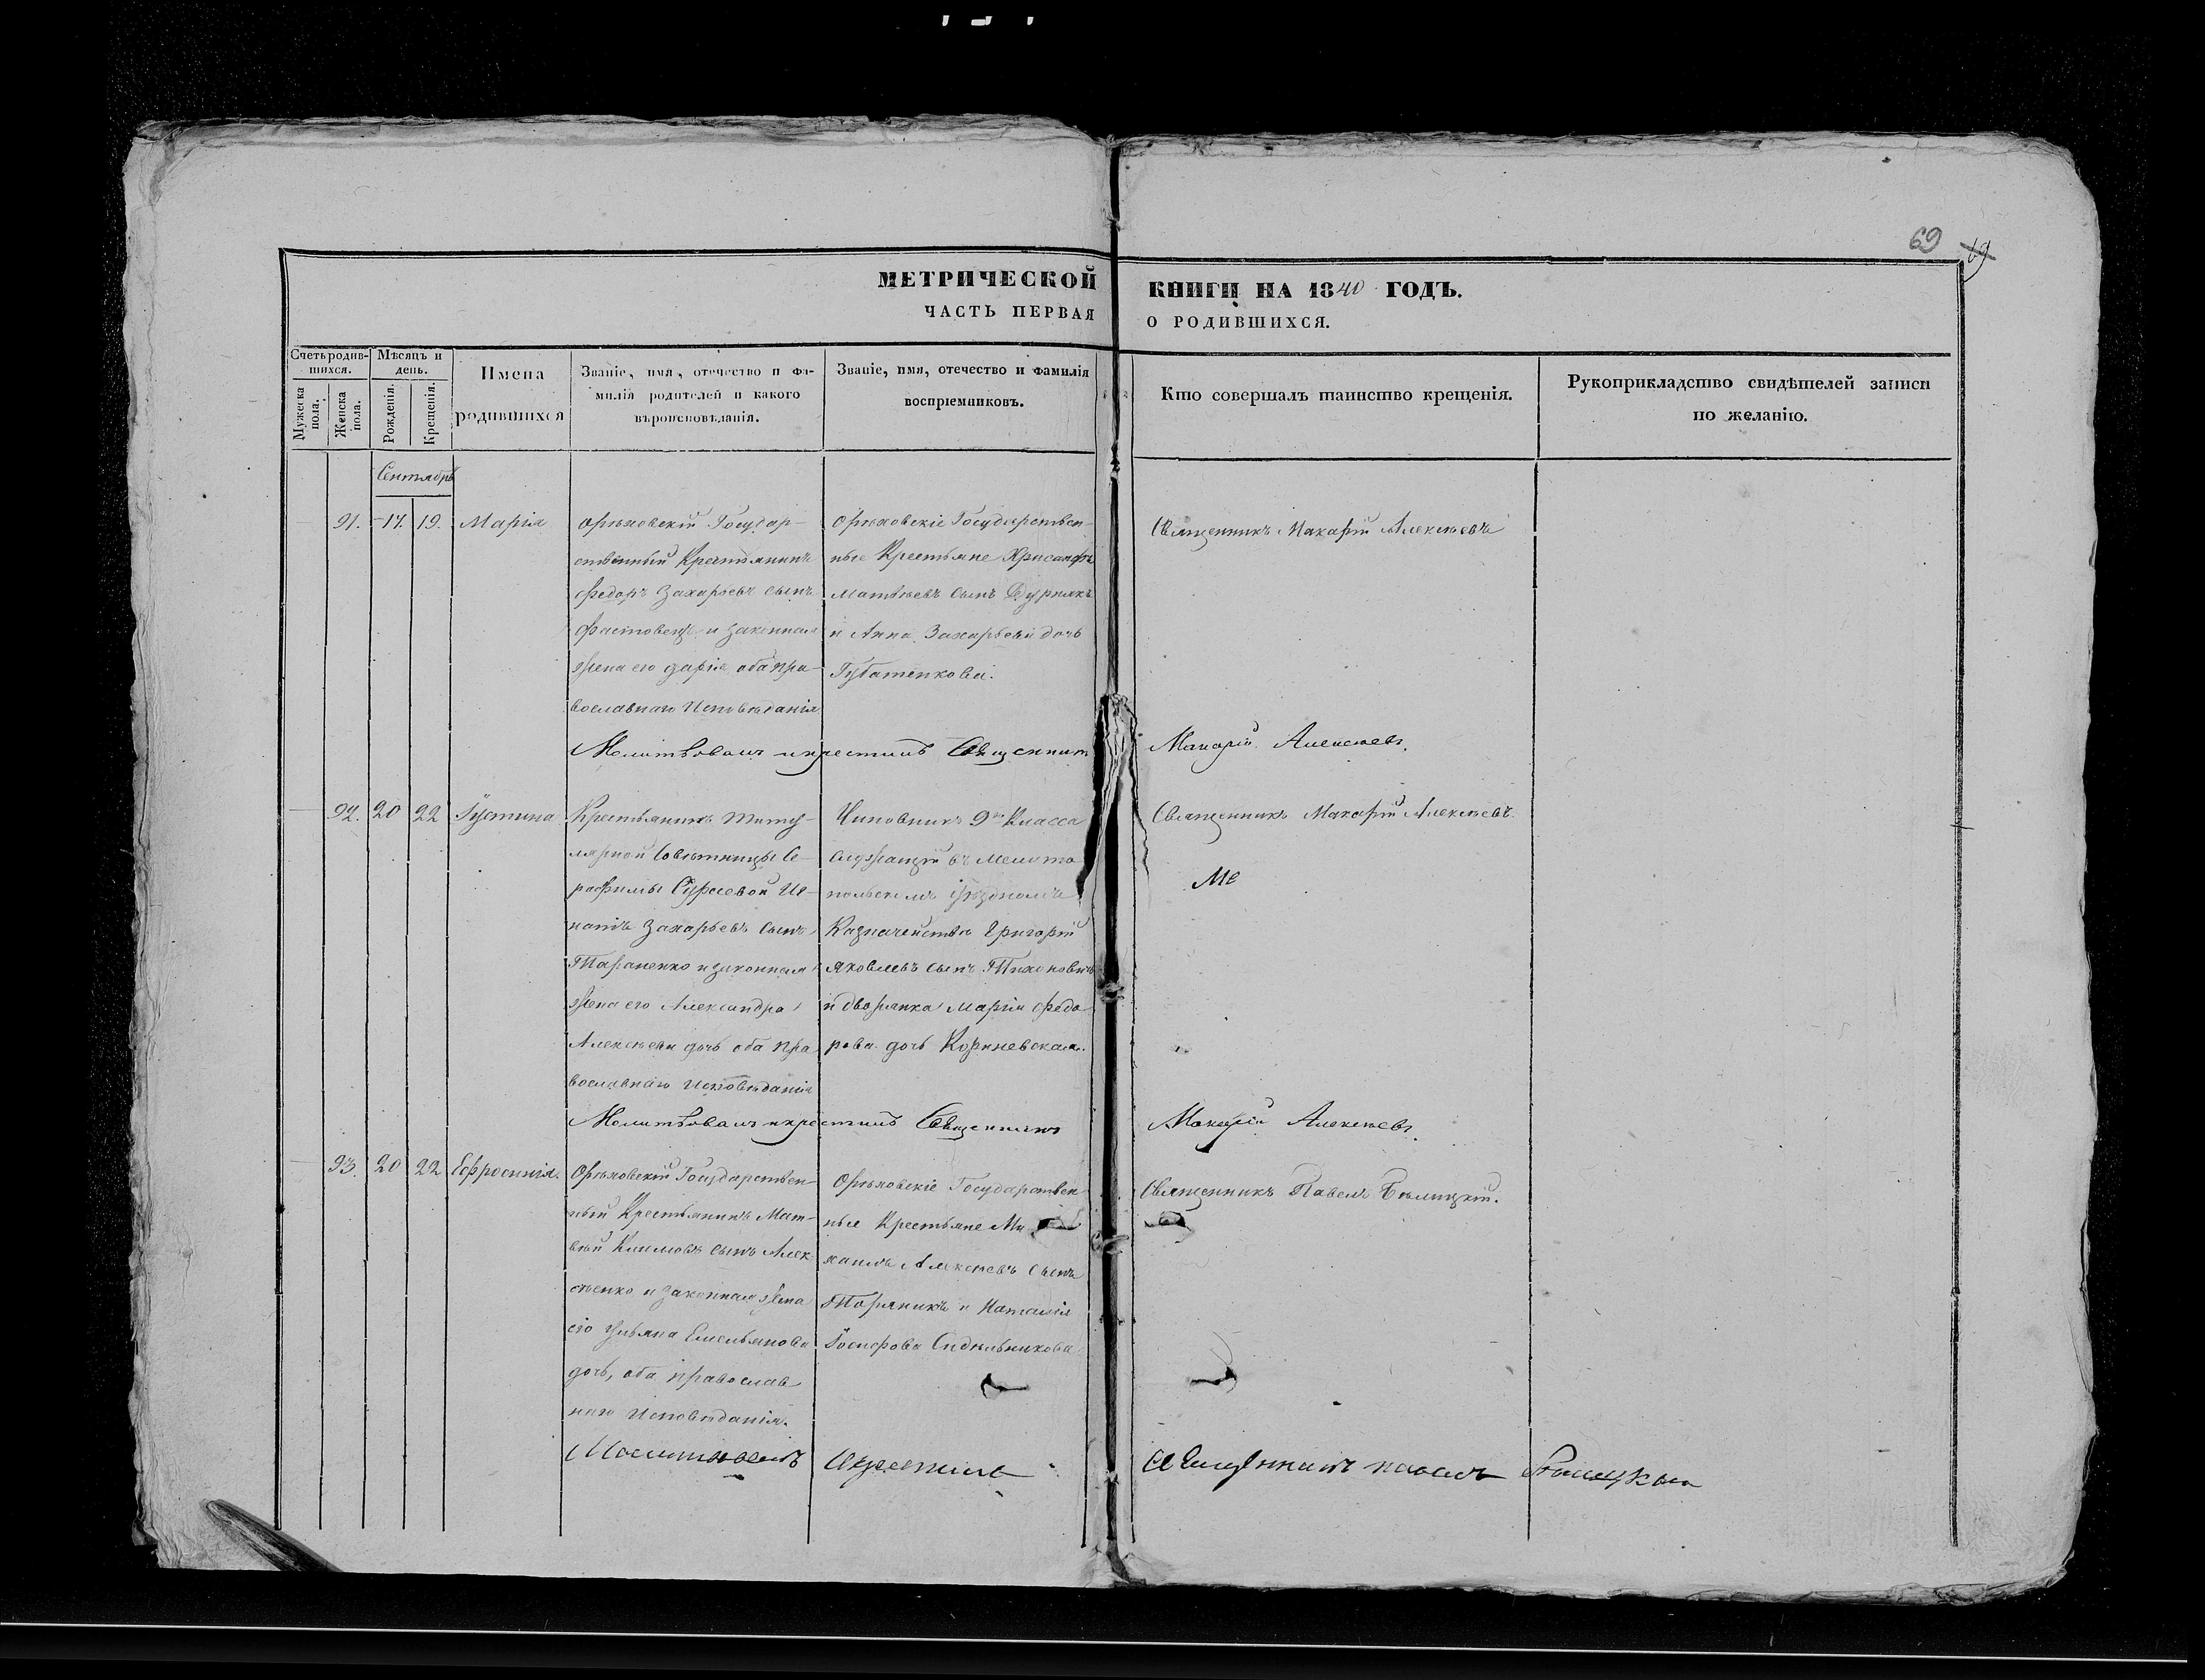 69
69
МЕТРИЧЕСКОЙ КНИГИ НА 1840 ГОДЪ.
ЧАСТЬ ПЕРВАЯ О РОДИВШИХСЯ.
Счетъ родив-
шихся.
Мужеска пола.
Женска пола.
Мѣсяцъ и
день.
Рожденія.
Крещенія.
Имена
родившихся
Званіе, имя, отечество и фа-
милія родителей и какого
вѣроисповѣданія.
Званіе, имя, отечество и фамилія
воспріемниковъ.
Кто совершалъ таинство крещенія.
Рукоприкладство свидѣтелей записи
по желанію.
Сентябрь
91. 17. 19. Марія
Орѣховскій Государ-
ственный Крестьянинъ
Федоръ Захарьевъ сынъ
Фастовецъ и законная
жена его Дарія оба пра-
вославнаго Исповѣданія
Орѣховскіе Государствен-
ные Крестьяне Хрисанфъ
Матвѣевъ сынъ Дурнякъ
и Анна Захарьева дочь
Губатенкова.
Священникъ Макарій Алексѣевъ
Молитвовалъ и крестилъ Священникъ Макарій Алексѣевъ.
92. 20 22 Іустина
Крестьянинъ титу-
лярной Совѣтницы Се-
рафимы Гурсевой Иг-
натъ Захарьевъ сынъ
Тараненко и законная
жена его Александра
Алексѣева дочь оба пра
вославнаго Исповѣданія
Чиновникъ 9го Класса
служащій въ Мелито
польскомъ уѣздномъ
Казначействѣ Григорій
Яковлевъ сынъ Тихоновичъ
и дворянка Марія Федо
рова дочь Корчневская.
Священникъ Макарій Алексѣевъ.
Ме
Молитвовалъ и крестилъ Священникъ Макарій Алексѣевъ.
93. 20 22 Ефросинія.
Орѣховскій Государствен-
ный Крестьянинъ Мат-
вѣй Климовъ сынъ Алек
сѣенко и законная жена
его Ульяна Емельянова
дочь, оба православ
наго Исповѣданія.
Орѣховскіе Государствен
ные Крестьяне Ми
хаилъ Алексѣевъ сынъ
Торяникъ и Наталія
Іосифова Сидѣльникова
Священникъ Павелъ Бѣлицкій.
Молитвовалъ и крестилъ священникъ Павелъ Бѣлицкій